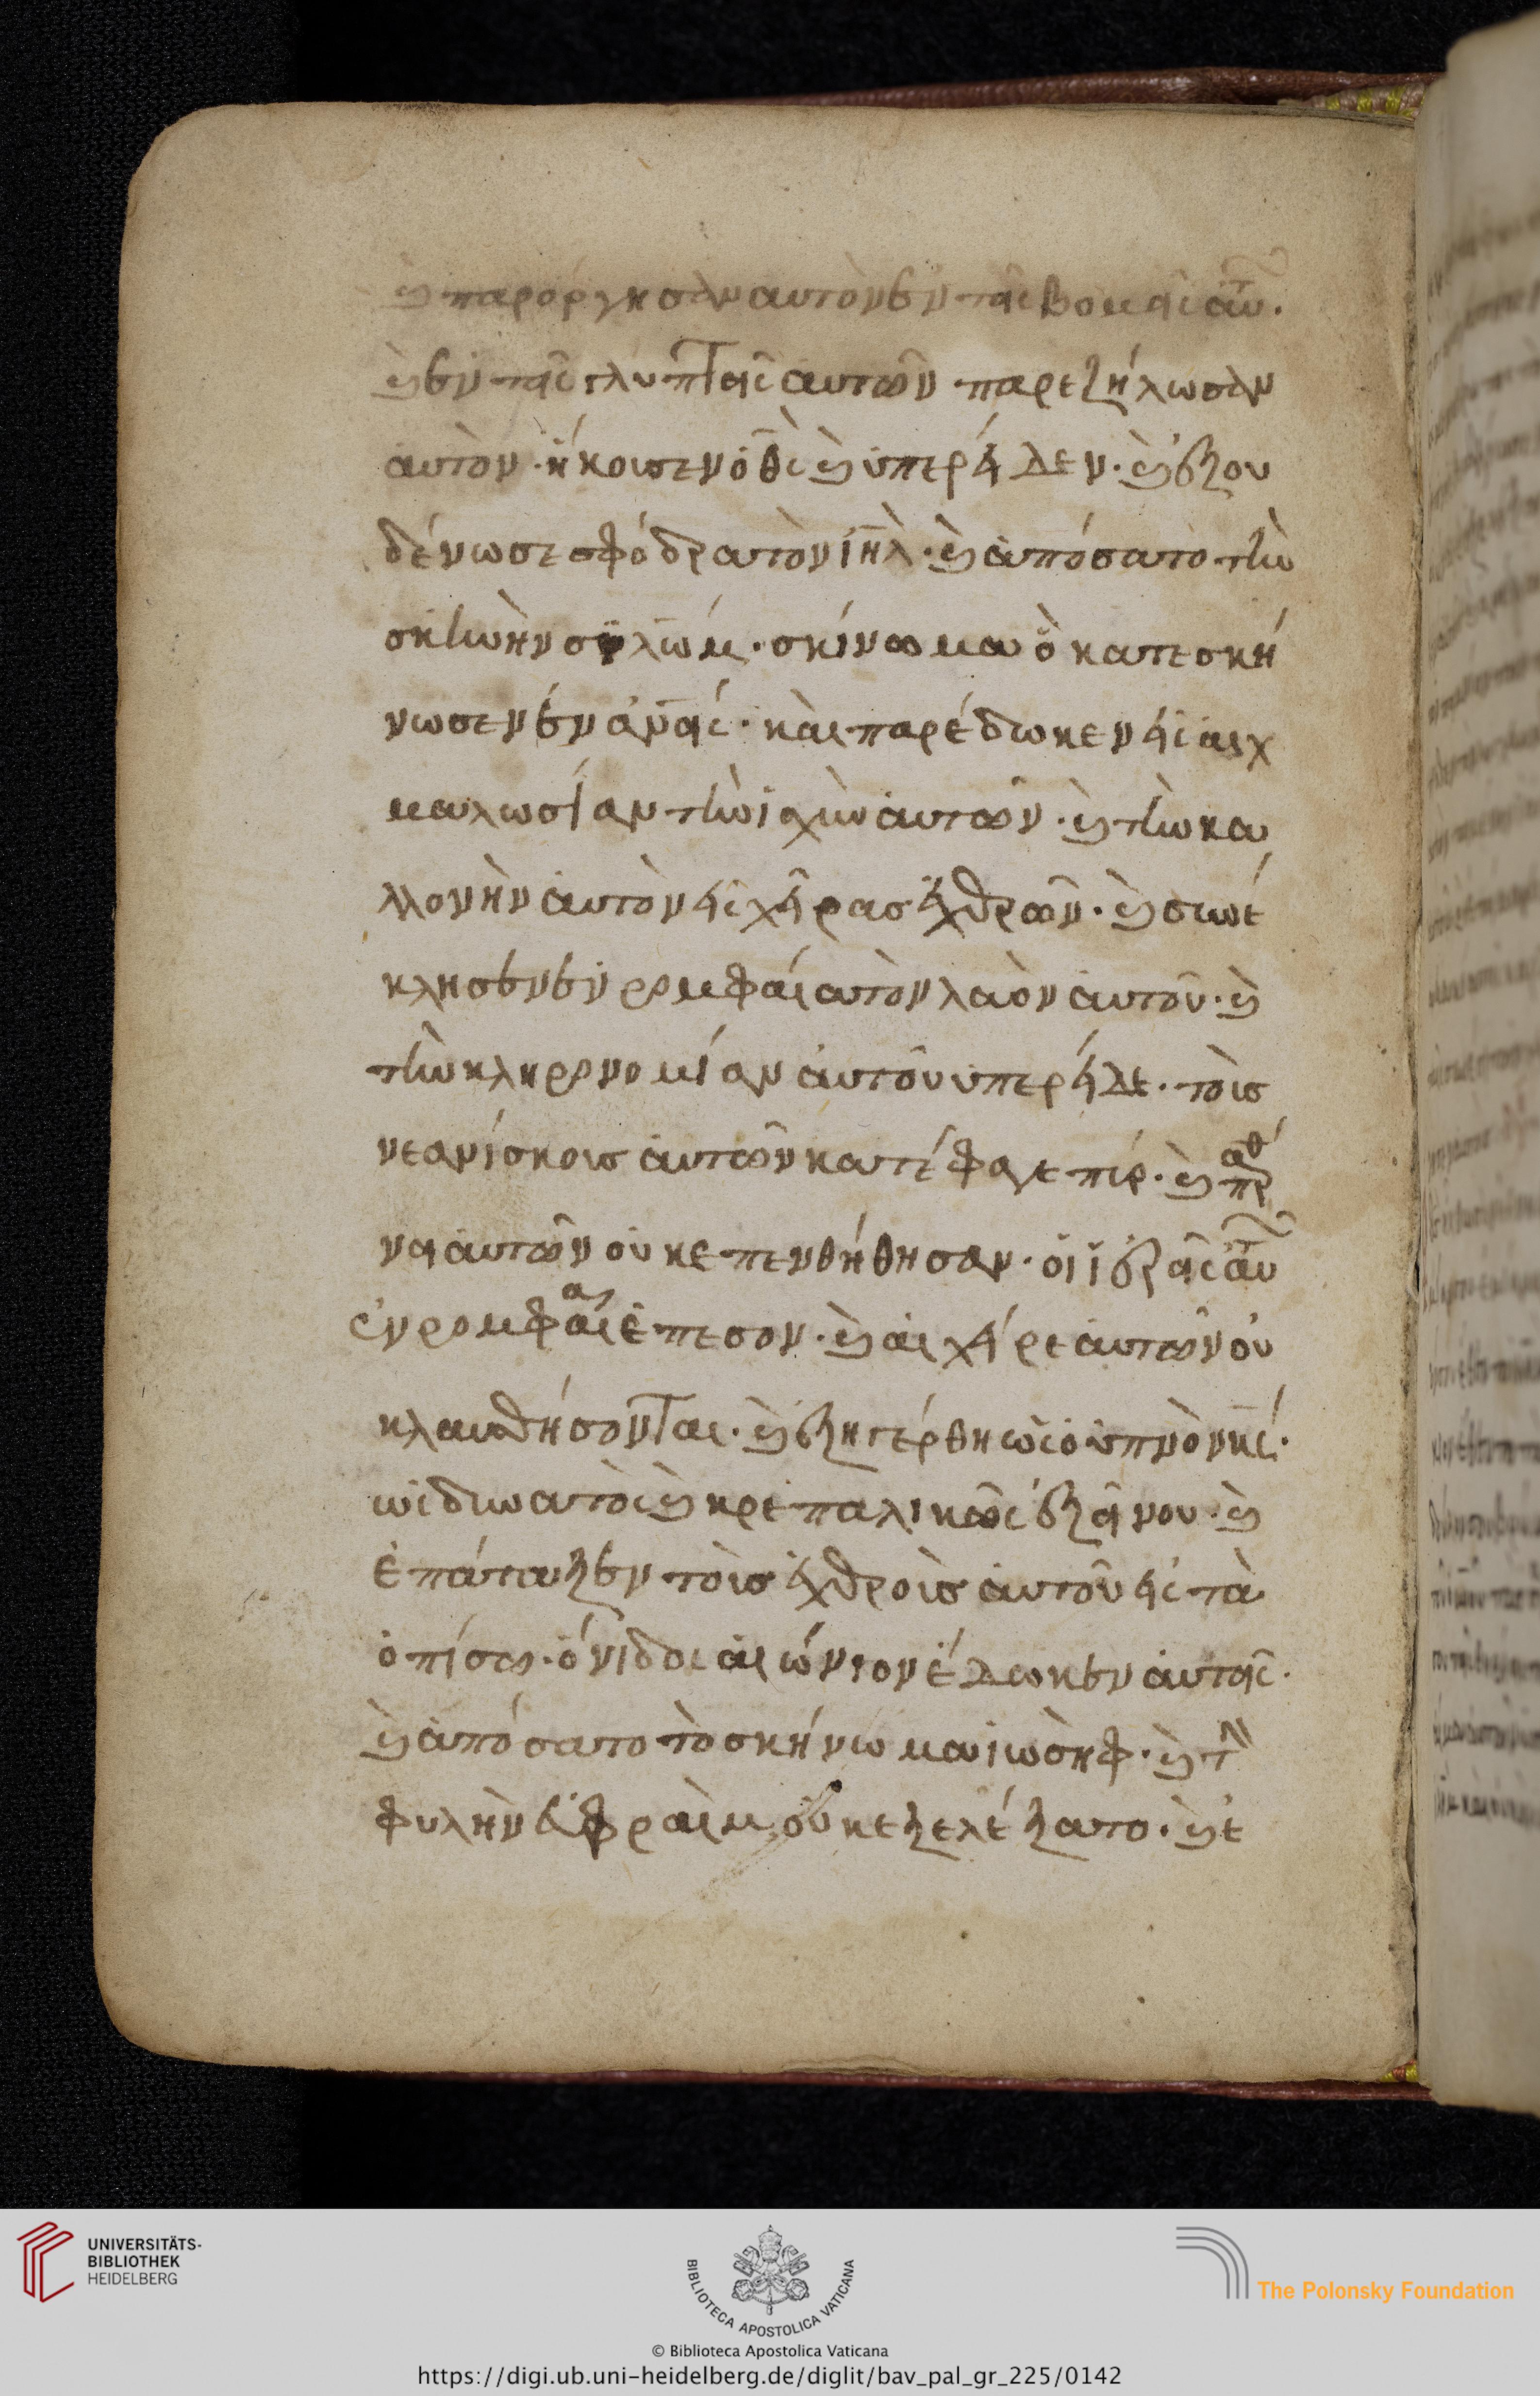 ϗ παρόργησαν αυτὸν ἐν ταῖς βομαῖς αὐτ͂.
ϗ ἐν ταῖς γλυπταῖς αυτῶν παρεζήλωσαν
αυτὸν. ἤκουσεν ὁ θ̅ς ϗ ὑπερείδεν. ϗ ἐξου
δένωσε σφόδρα τὸν ι̅η̅λ. ϗ ἀπόσατο τὴν
σκηνὴν σϊλώμ. σκίνωμα ὃ κατεσκή
νωσεν ἐν α̅ν̅οις. καὶ παρέδωκεν εἰς αἰχ
μαλωσίαν τὴν ἰσχὺν αυτῶν. ϗ τὴν κα
λλονὴν αυτὸν εἰς χεῖρας ἐχθρῶν. ϗ συνέ
κλησεν ἐν ρομφαία τὸν λαὸν αυτοῦ. ϗ
τὴν κληρονομίαν αυτοῦ ὑπερείδε. τοὺς
νεανίσκους αυτῶν κατέφαγε πίρ. ϗ αἱ παρθέ
ναι αυτῶν οὐκ επενθήθησαν. οἱ ἱερεῖς αὐτ͂
ἐν ρομφαία ἔπεσον. ϗ αἱ χείρε αυτῶν οὐ
κλαυθήσονται. ϗ ἐξηγέρθη ὡς ὁ ὑπνὸν κ̅ς.
ὡς δυνατὸς ϗ κρεπαλικὼς ἐξ οἴνου. ϗ
ἐπάταξεν τοὺς ἐχθροὺς αυτοῦ εἰς τὰ
ὀπίσω. ὄνιδος αἰώνιον έδωκεν αυτοῖς.
ϗ ἀπόσατο τὸ σκήνωμα ἰωσὴφ. ϗ τὴν
φυλὴν ἐφραὶμ οὐκ εξελέξατο. ϗ ἐ
UNIVERSITÄTS-
BIBLIOTHEK
HEIDELBERG
BIBLIOTECA APOSTOLICA VATICANA
The Polonsky Foundation
© Biblioteca Apostolica Vaticana
https://digi.ub.uni-heidelberg.de/diglit/bav_pal_gr_225/0142